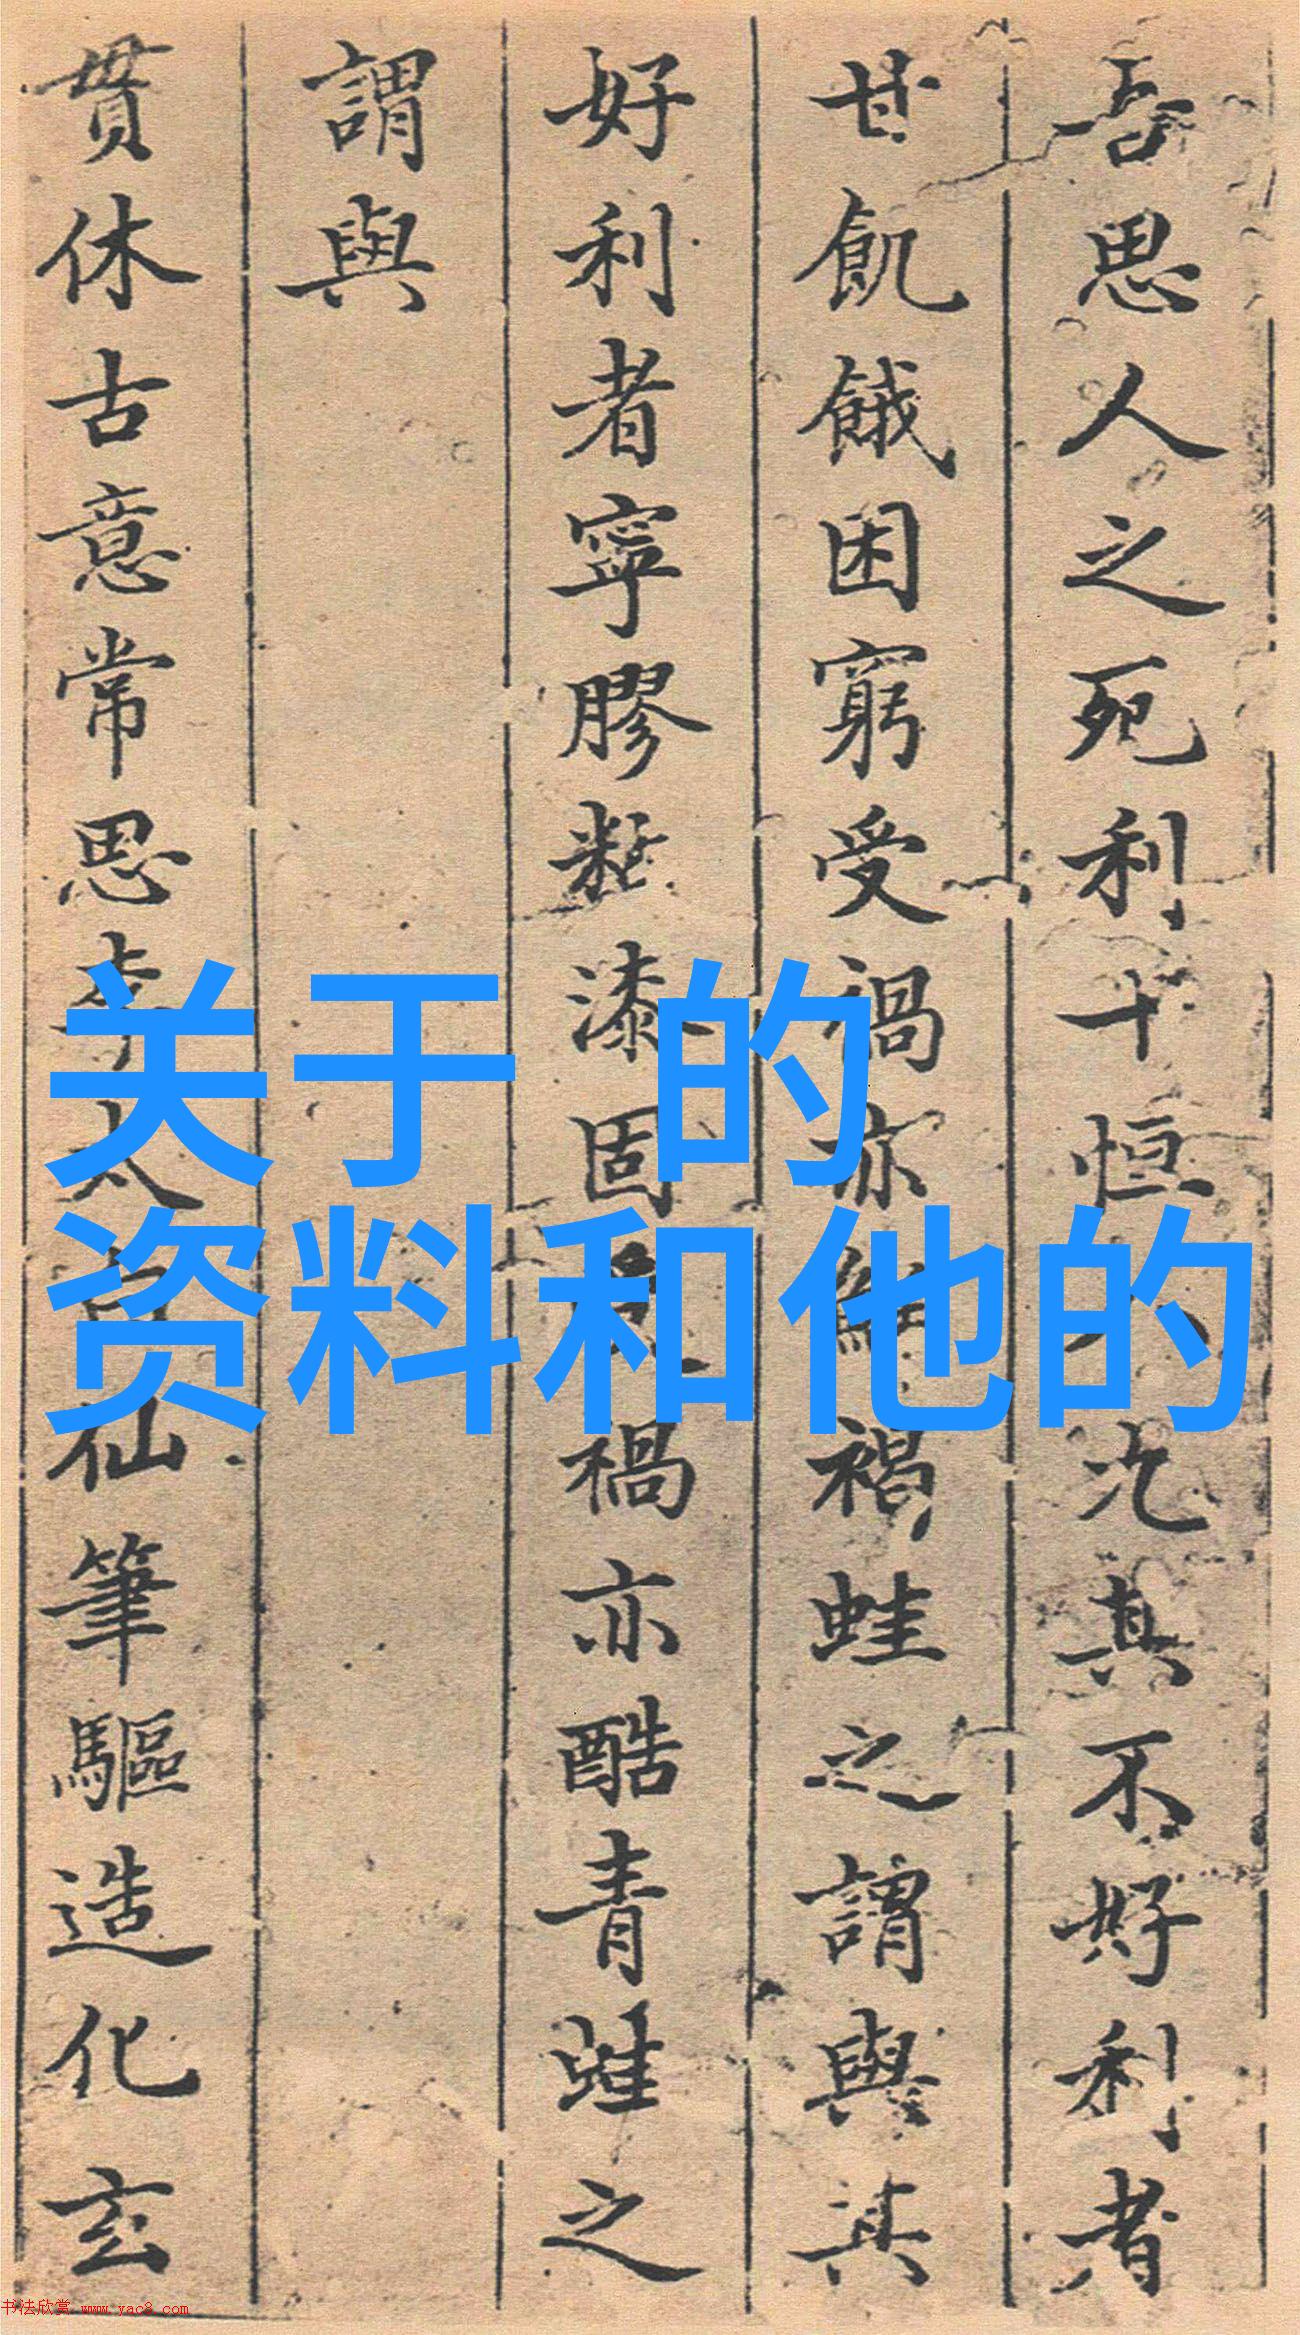 吾思人之死利十恒八九其不好利者
甘飢餓困窮受禍亦
褐蛙之謂與其
好利者寧膠黏漆固
禍亦酷青蛙之
謂與
貫休古意常思李太白仙筆驅造化玄
关于 的
资料和他的
书法欣赏 www.yac8.com